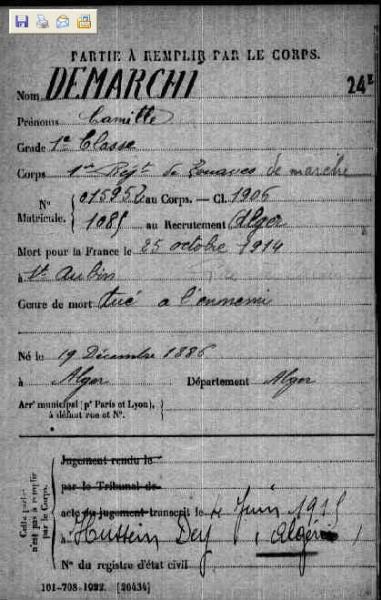 PARTIE À REMPLIR PAR LE CORPS.
Nom DEMARCHI 24E
Prénoms Camille
Grade 1e Classe
Corps 1er Régt de Zouaves de marche
N° Matricule. { 015952 au Corps. — Cl. 1906
1085 au Recrutement Alger
Mort pour la France le 25 octobre 1914
à St Aubin
Genre de mort tué à l'ennemi
Né le 19 Décembre 1886
à Alger Département Alger
Arrt municipal (pr Paris et Lyon),
à défaut rue et N°.
Cette partie n'est pas à remplir par le Corps.
Jugement rendu le
par le Tribunal de
acte du jugement transcrit le Juin 1915
à Hussein Dey (Algérie)
N° du registre d'état civil
101-708-1922. [26434]